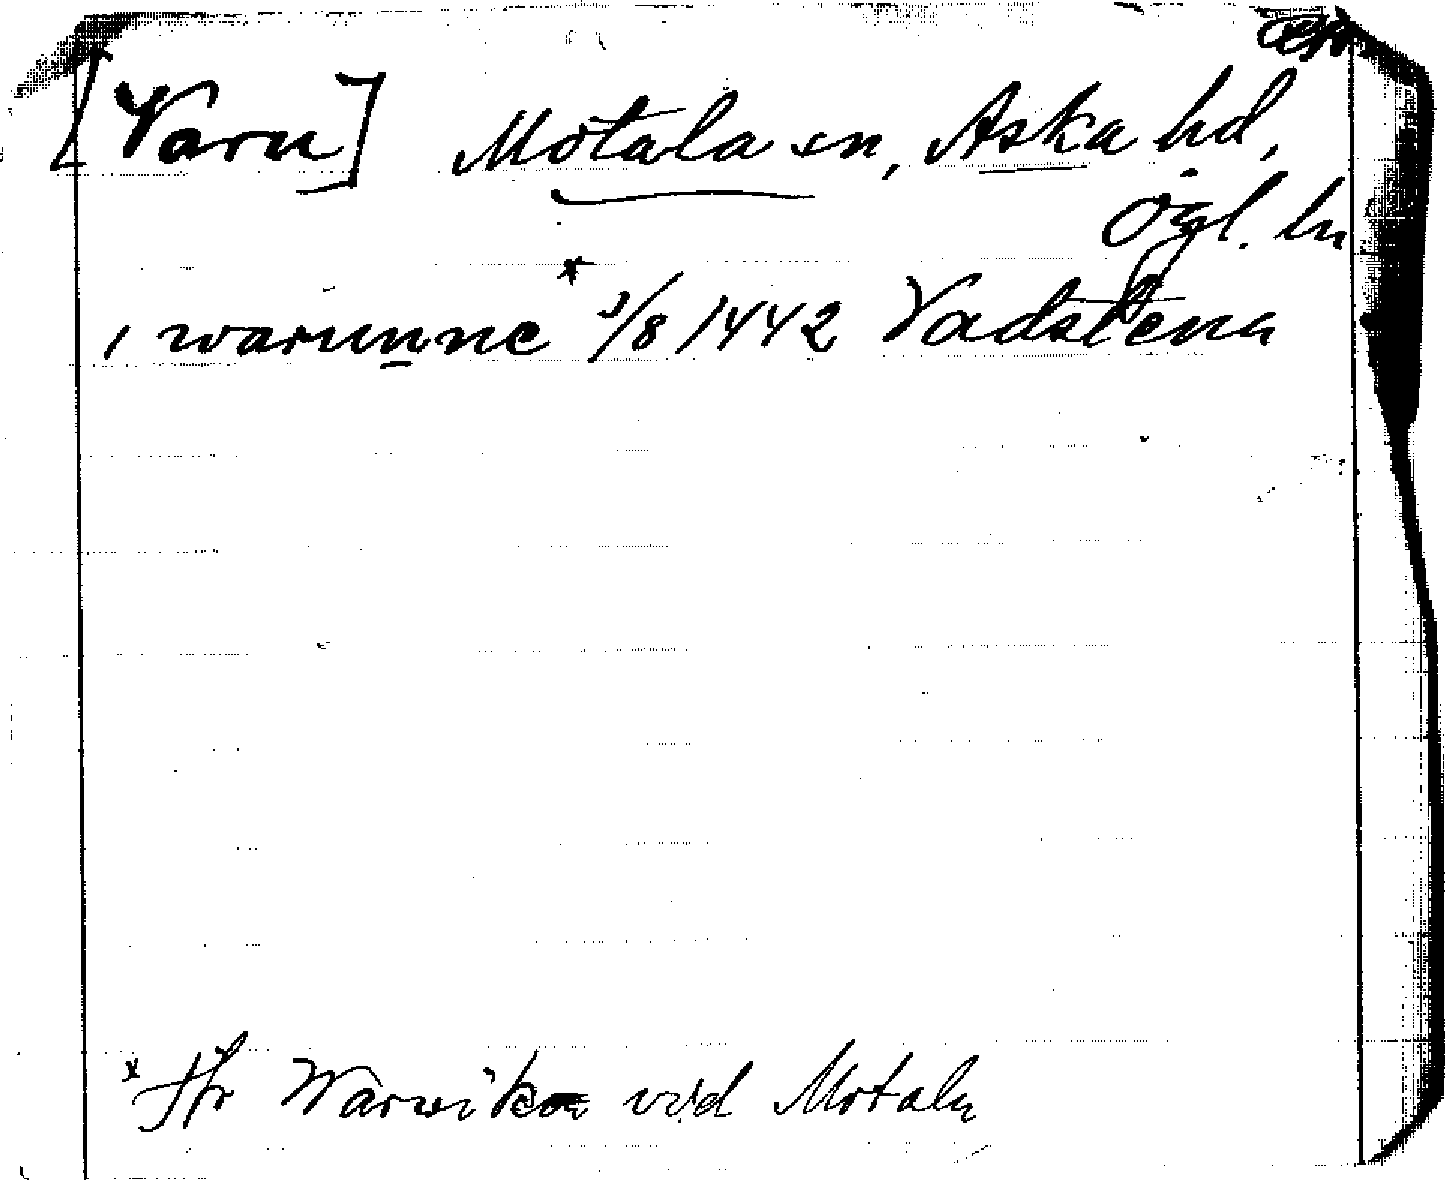 [Varu] Motala sn, Aska hd,
Ögl. ln
i warunne * 1/8 1442 Vadstena
x Jfr Warwiken vid Motala